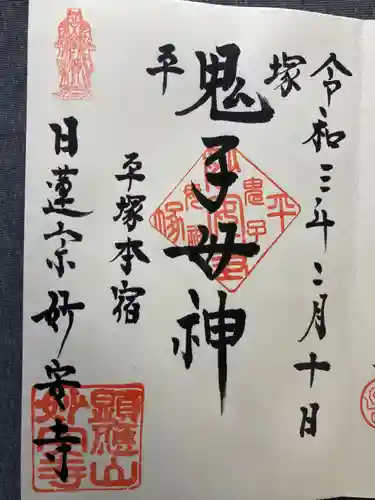 令和三年二月十日
平塚
鬼子母神
平塚本宿
日蓮宗妙安寺
顕應山
妙安寺